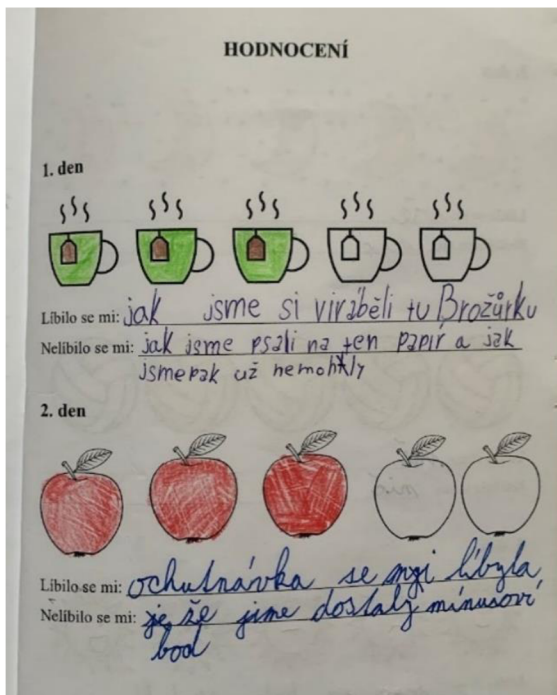 HODNOCENÍ
1. den
Líbilo se mi: jak jsme si viráběli tu Brožůrku
Nelíbilo se mi: jak jsme psali na ten papír a jak
jsme pak už nemohly
2. den
Líbilo se mi: ochutnávka se myi líbyla
Nelíbilo se mi: je že jsme dostaly mínusoví
bod